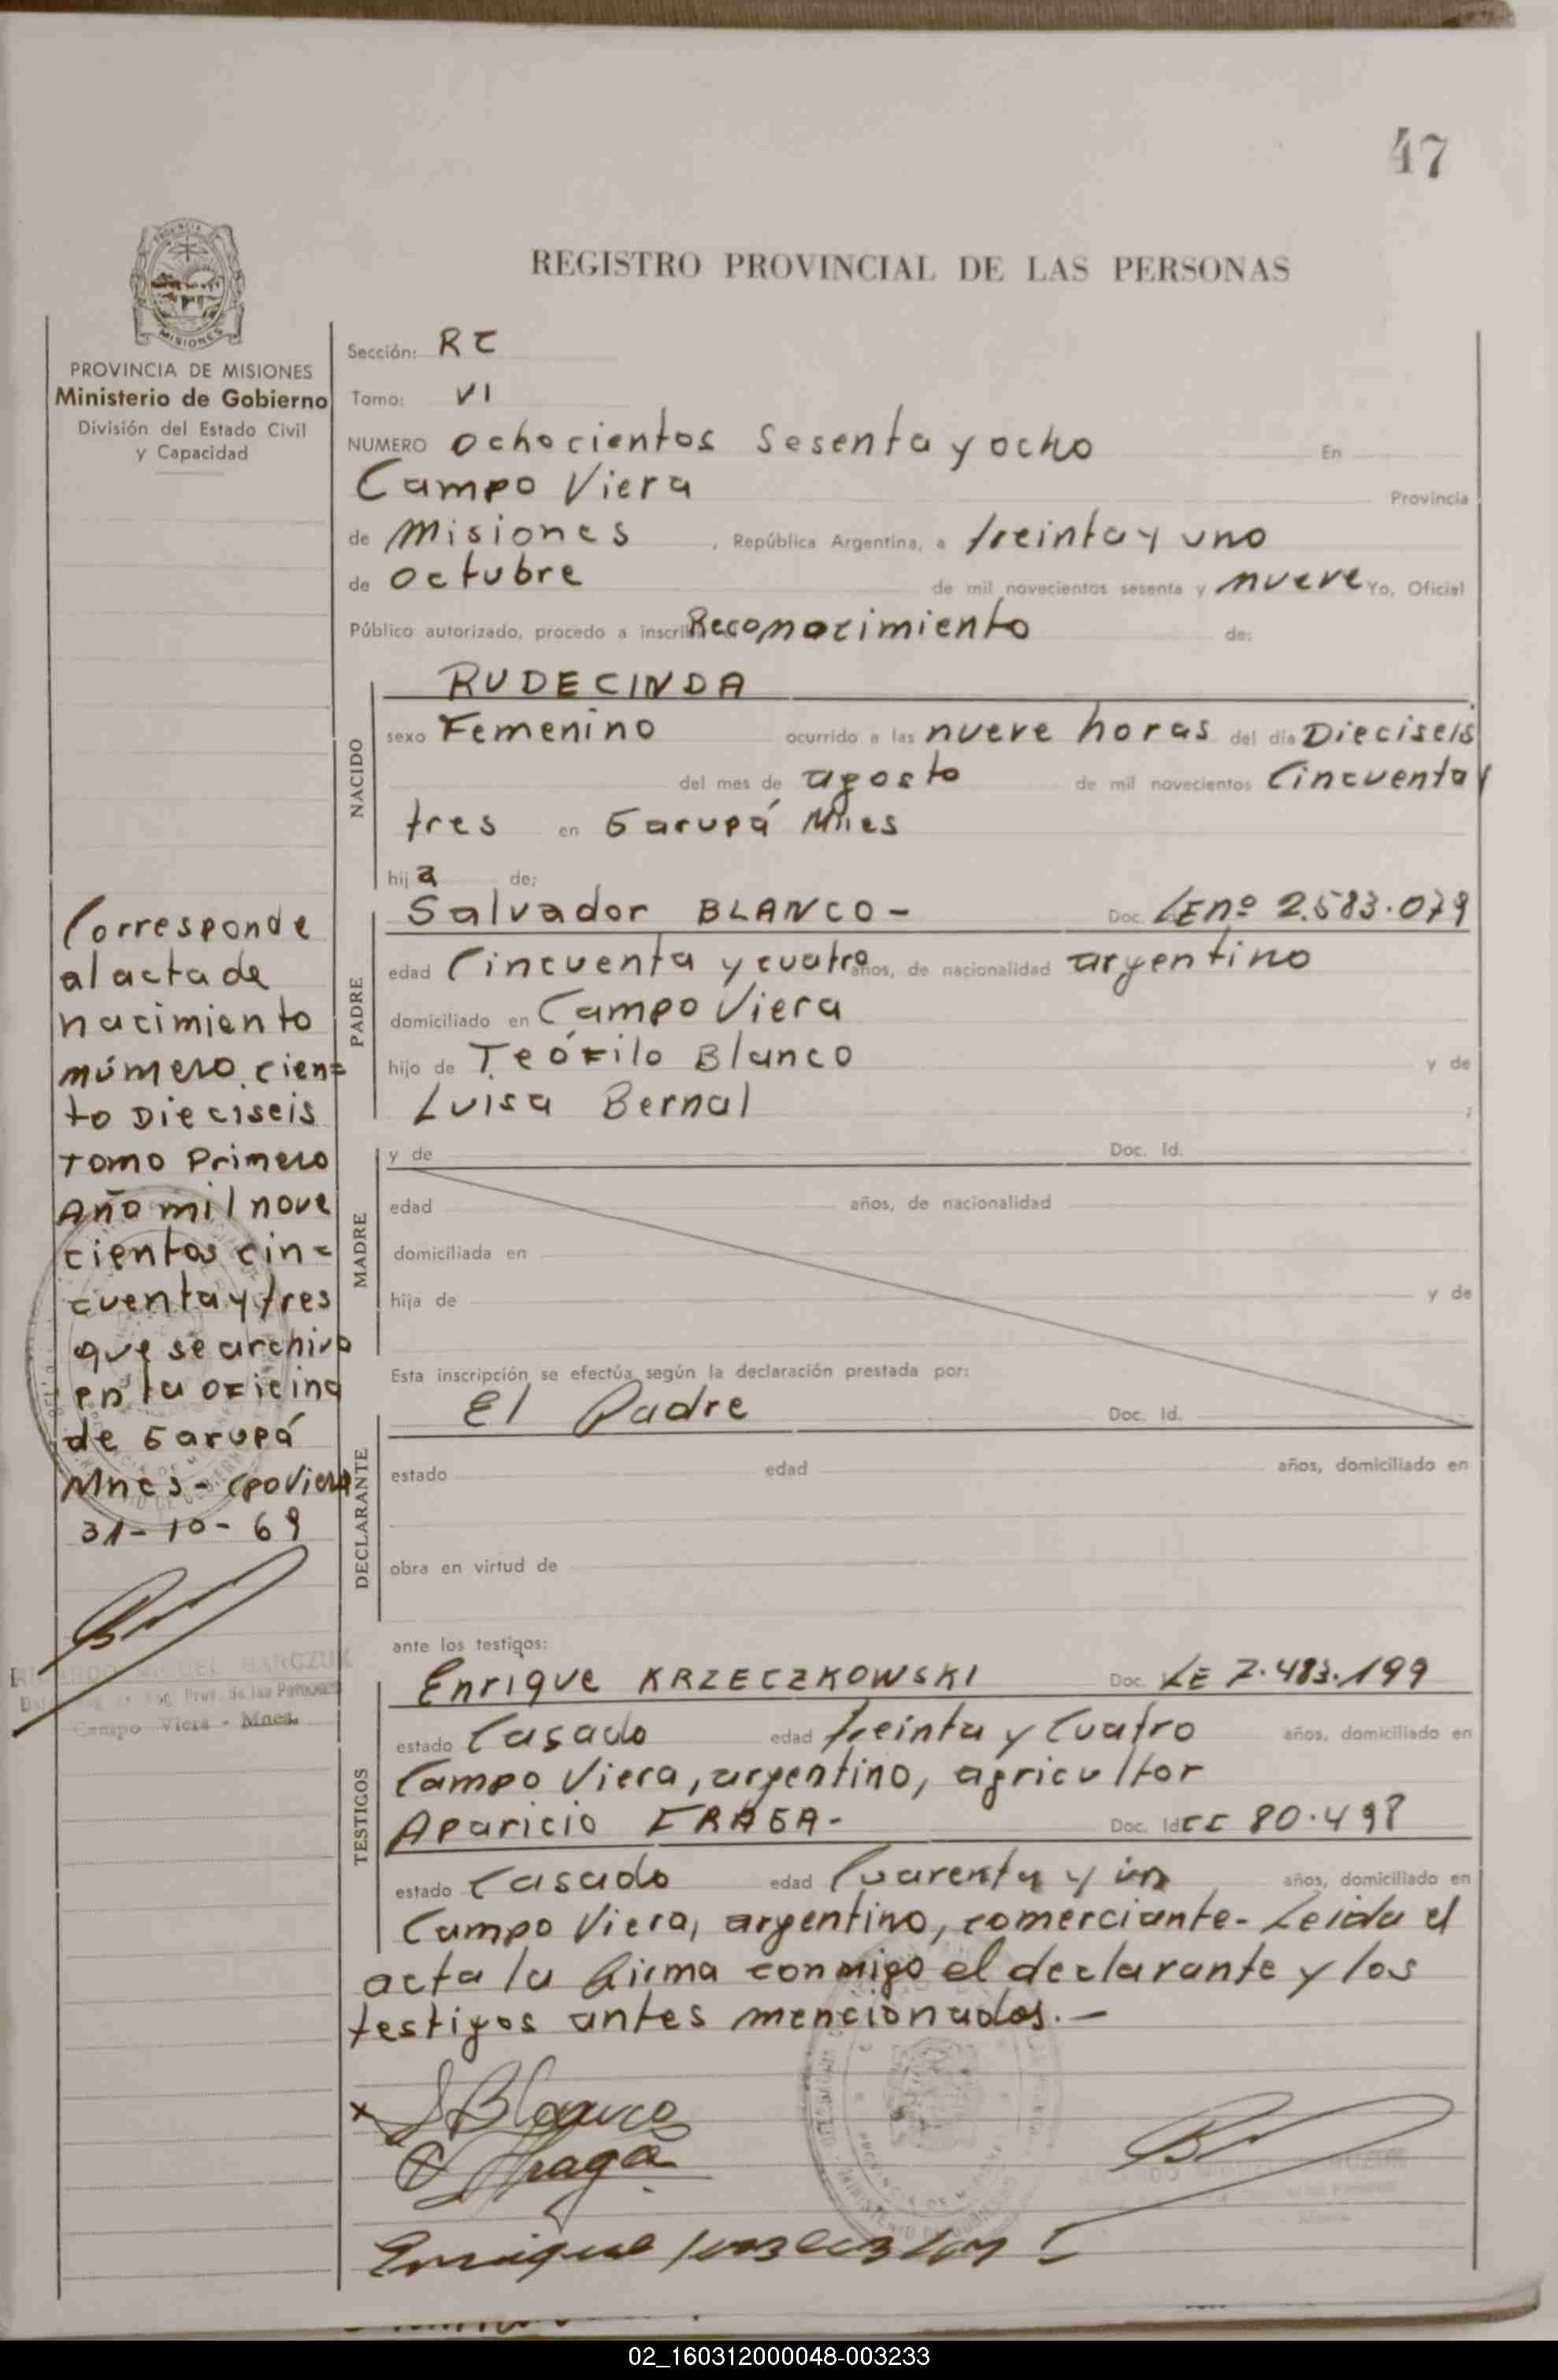 47
REGISTRO PROVINCIAL DE LAS PERSONAS
MISIONES
PROVINCIA DE MISIONES
Ministerio de Gobierno
División del Estado Civil
y Capacidad
Sección: RC
Tomo: VI
NUMERO Ochocientos Sesenta y ocho En
Campo Viera Provincia
de Misiones , República Argentina, a treinta y uno
de octubre de mil novecientos sesenta y nueve Yo, Oficial
Público autorizado, procedo a inscribir Reconocimiento de:
NACIDO
RUDECINDA
sexo Femenino ocurrido a las nueve horas del día Dieciseis
del mes de agosto de mil novecientos Cincuenta y
tres en Garupá Mnes
hija de:
PADRE
Salvador BLANCO - Doc. LE nº 2.583.079
edad Cincuenta y cuatro años, de nacionalidad argentino
domiciliado en Campo Viera
hijo de Teófilo Blanco y de
Luisa Bernal ;
MADRE
y de Doc. Id.
edad años, de nacionalidad
domiciliada en
hija de y de
Esta inscripción se efectúa según la declaración prestada por:
DECLARANTE
El Padre Doc. Id.
estado edad años, domiciliado en
obra en virtud de
ante los testigos:
TESTIGOS
Enrique KRZECZKOWSKI Doc. LE 7.483.199
estado Casado edad treinta y Cuatro años, domiciliado en
Campo Viera, argentino, agricultor
Aparicio FRAGA - Doc. Id CC 80.498
estado Casado edad Cuarenta y un años, domiciliado en
Campo Viera, argentino, comerciante - Leida el
acta la firma conmigo el declarante y los
testigos antes mencionados. -
x S Blanco
Fraga
Enrique
Corresponde
al acta de
nacimiento
número cien=
to Dieciseis
Tomo Primero
Año mil nove
cientos cin=
cuenta y tres
que se archivo
en la oficina
de Garupá
Mnes - Cpo Viera
31-10-69
RICARDO MIGUEL BARCZUK
Reg. Prov. de las Personas
Campo Viera - Mnes.
02_160312000048-003233